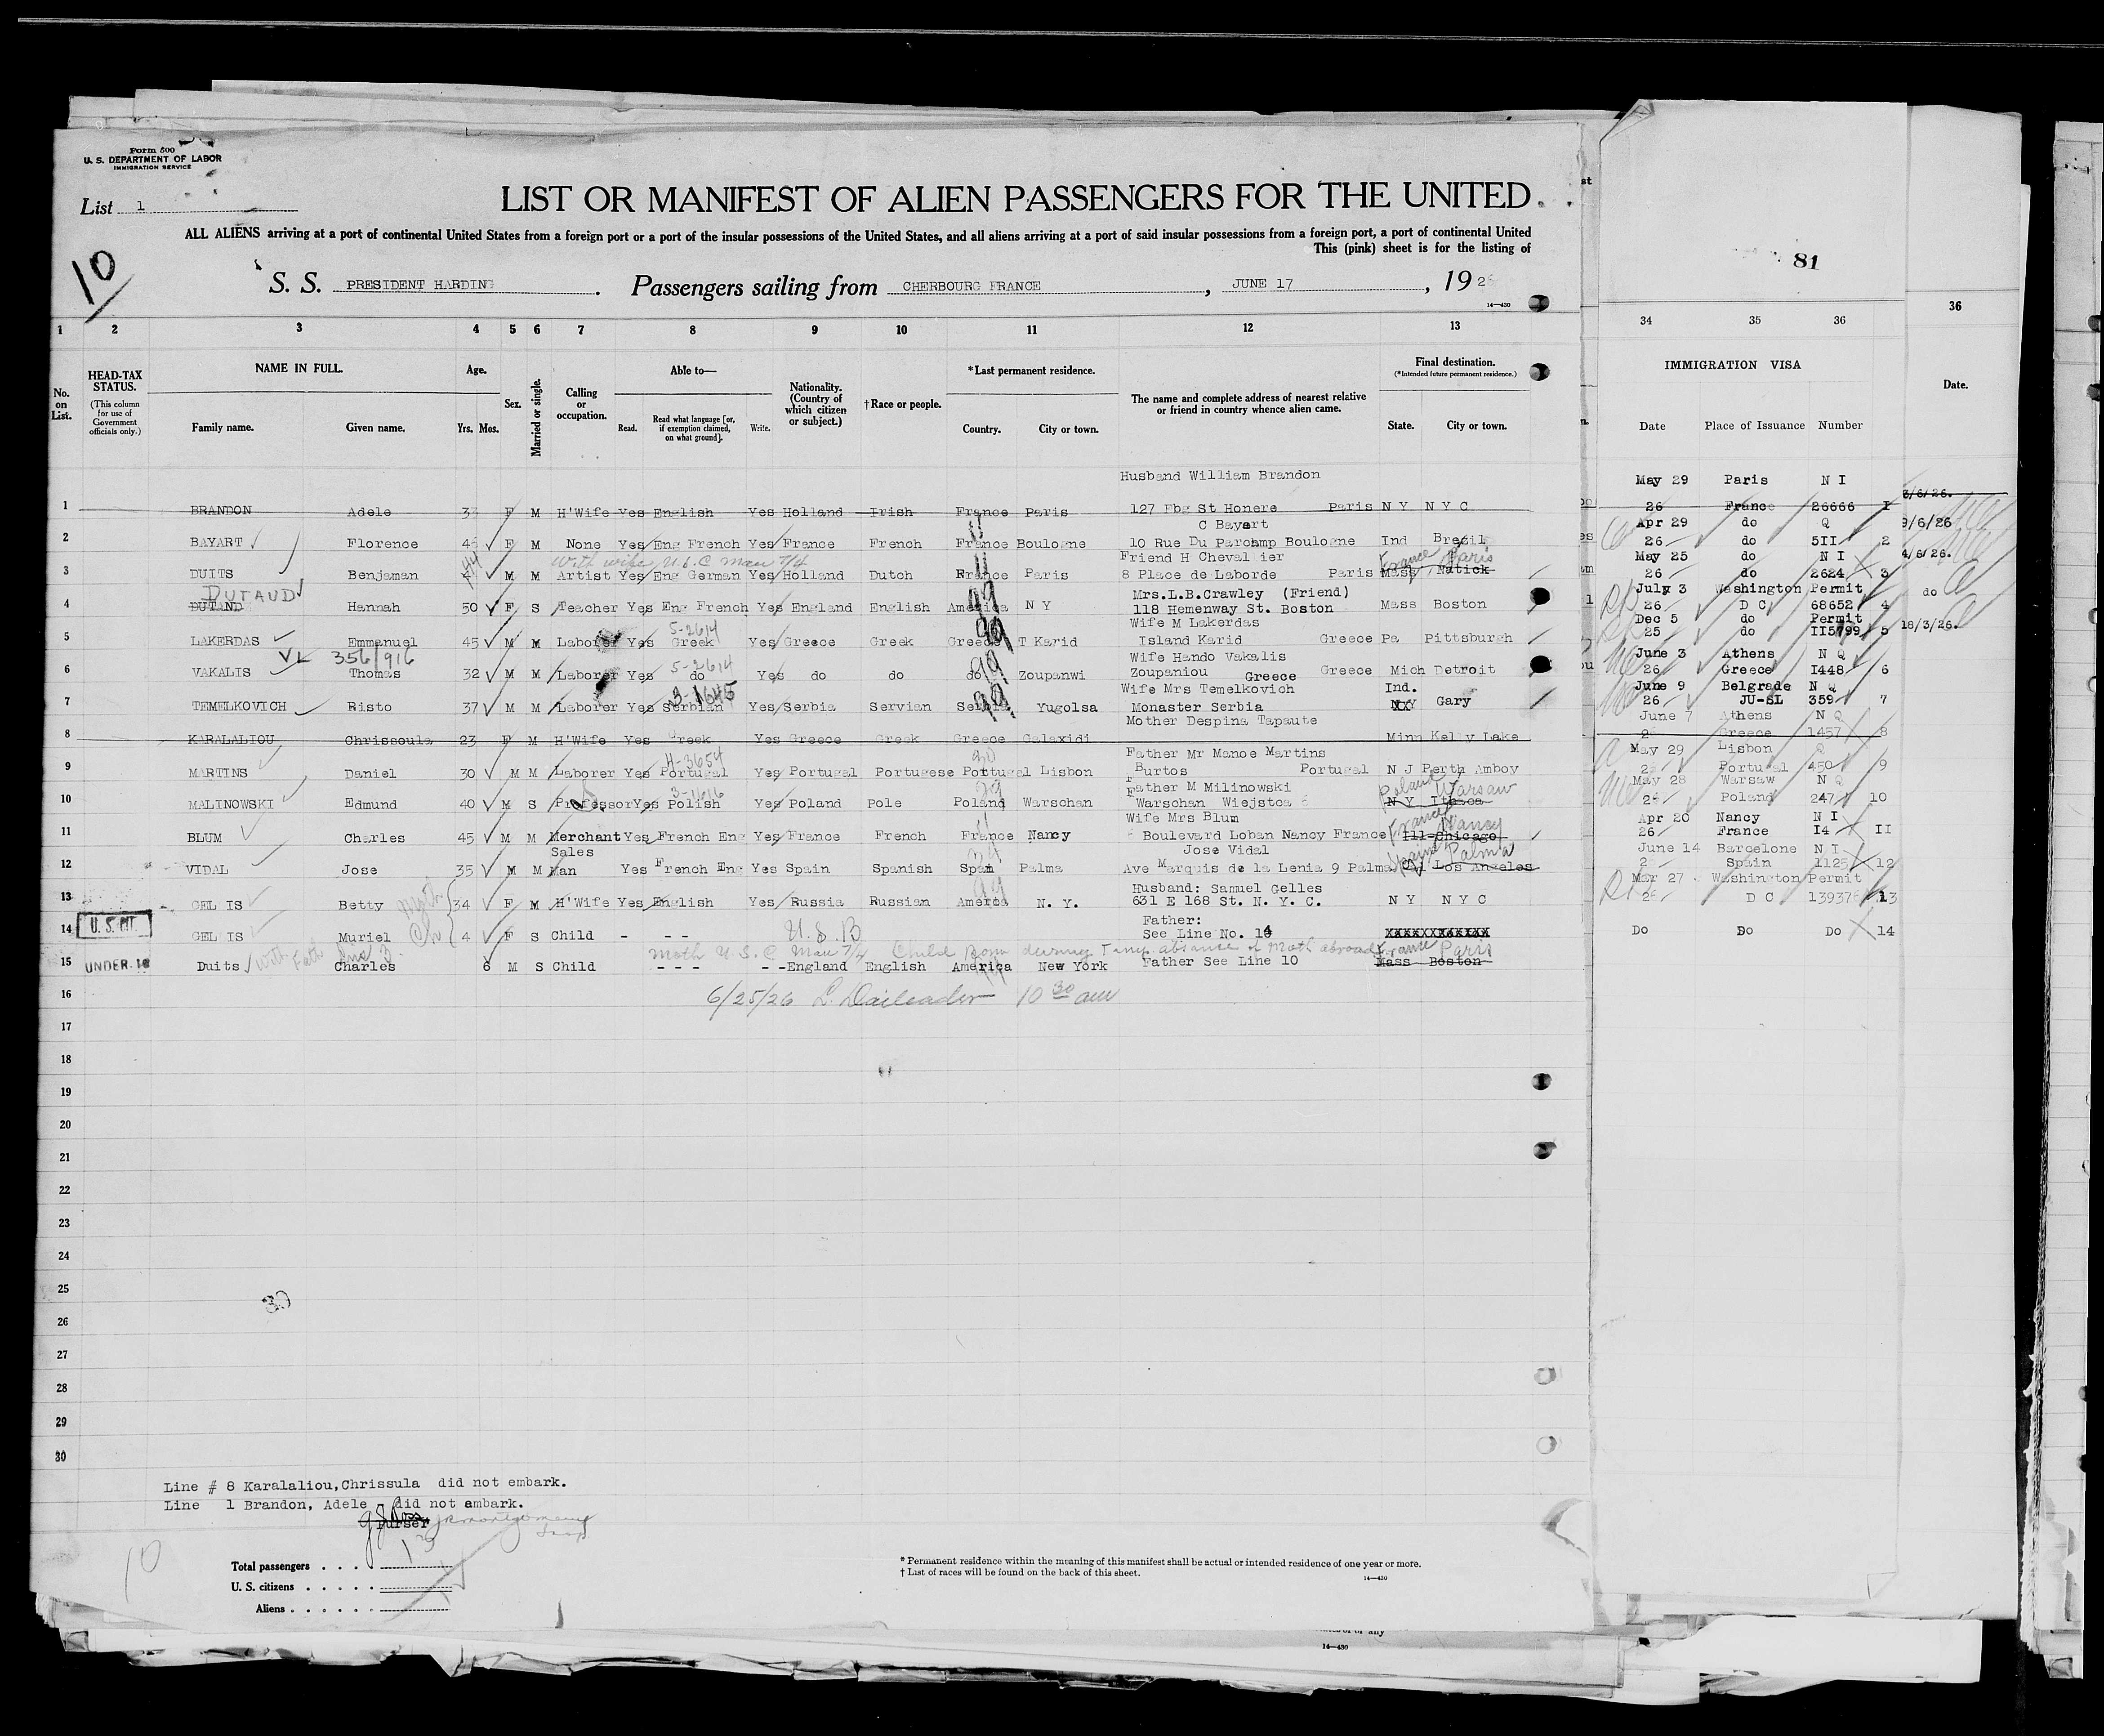 Form 500
U. S. DEPARTMENT OF LABOR
IMMIGRATION SERVICE
List 1
LIST OR MANIFEST OF ALIEN PASSENGERS FOR THE UNITED
ALL ALIENS arriving at a port of continental United States from a foreign port or a port of the insular possessions of the United States, and all aliens arriving at a port of said insular possessions from a foreign port, a port of continental United
This (pink) sheet is for the listing of
10
S. S. PRESIDENT HARDING. Passengers sailing from CHERBOURG FRANCE, JUNE 17, 192
14—430
81
1 2 3 4 5 6 7 8 9 10 11 12 13 34 35 36 36
No. on List.
HEAD-TAX STATUS.
(This column for use of Government officials only.)
NAME IN FULL.
Family name. Given name.
Age.
Yrs. Mos.
Sex.
Married or single.
Calling or occupation.
Able to—
Read. Read what language [or, if exemption claimed, on what ground]. Write.
Nationality. (Country of which citizen or subject.)
†Race or people.
*Last permanent residence.
Country. City or town.
The name and complete address of nearest relative or friend in country whence alien came.
Final destination.
(*Intended future permanent residence.)
State. City or town.
IMMIGRATION VISA
Date Place of Issuance Number
Date.
Husband William Brandon May 29 Paris N I
1 BRANDON Adele F M H'Wife Yes English Yes Holland Irish France Paris 127 Fbg St Honere Paris N Y N Y C 26 France 26666 I 3/6/26.
C Bayart Apr 29 do Q 9/6/26
2 BAYART Florence F M None Yes Eng French Yes France French France Boulogne 10 Rue Du Parchmp Boulogne Ind Brecil 26 do 5II 2
With wife U.S.C. Man 7/4 Friend H Cheval ier France Paris May 25 do N I 4/6/26.
3 DUITS Benjaman 44 M M Artist Yes Eng German Yes Holland Dutch France Paris 8 Place de Laborde Paris Mass Natick 26 do 2624 3
DUTAUD Mrs.L.B.Crawley (Friend) July 3 Washington Permit do
4 DUTAND Hannah 50 F S Teacher Yes Eng French Yes England English America N Y 118 Hemenway St. Boston Mass Boston 26 D C 68652 4
5-2614 Wife M Lakerdas Dec 5 do Permit 18/3/26.
5 LAKERDAS Emmanuel 45 M M Laborer Yes Greek Yes Greece Greek Greece T Karid Island Karid Greece Pa Pittsburgh 25 do II5799 5
356/916 5-2614 Wife Hando Vakalis June 3 Athens N Q
6 VAKALIS Thomas 32 M M Laborer Yes do Yes do do do Zoupanwi Zoupaniou Greece Greece Mich Detroit 26 Greece I448 6
3-1645 Wife Mrs Temelkovich Ind. June 9 Belgrade N Q
7 TEMELKOVICH Risto 37 M M Laborer Yes Serbian Yes Serbia Servian Serbia Yugolsa Monaster Serbia Gary 26 JU-SL 359 7
Mother Despina Tapaute June 7 Athens N Q
8 KARALALIOU Chrissoula 23 F M H'Wife Yes Greek Yes Greece Greek Greece Galaxidi Minn Kelly Lake Greece 1457 8
4-3654 Father Mr Manoe Martins May 29 Lisbon Q
9 MARTINS Daniel 30 M M Laborer Yes Portugal Yes Portugal Portugese Portugal Lisbon Burtos Portugal N J Perth Amboy Portugal 450 9
3-1616 Father M Milinowski Poland Warsaw May 28 Warsaw N Q
10 MALINOWSKI Edmund 40 M S Professor Yes Polish Yes Poland Pole Poland Warschan Warschan Wiejstca 6 N Y Ithaca Poland 247 10
Wife Mrs Blum France Nancy Apr 20 Nancy N I
11 BLUM Charles 45 M M Merchant Yes French Eng Yes France French France Nancy 6 Boulevard Loban Nancy France Ill-Chicago 26 France I4 II
Sales Jose Vidal Spain Palma June 14 Barcelone N I
12 VIDAL Jose 35 M M Man Yes French Eng Yes Spain Spanish Spain Palma Ave Marquis de la Lenia 9 Palma Los Angeles Spain 1125 12
Husband: Samuel Gelles Mar 27 Washington Permit
13 GEL IS Betty 34 F M H'Wife Yes English Yes Russia Russian America N. Y. 631 E 168 St. N. Y. C. N Y N Y C D C 139376 13
U. S. CIT. Father:
14 GEL IS Muriel 4 F S Child - - - U.S.B See Line No. 14 Do Do Do 14
Moth U.S.C Man 7/4 Child born during Temp. absence of Moth abroad France Paris
15 UNDER 16 Duits With Fath Line 3 Charles 6 M S Child - - - - - England English America New York Father See Line 10 Mass Boston
16 6/25/26 10 30 am
17
18
19
20
21
22
23
24
25
26
27
28
29
30
30
Line # 8 Karalaliou,Chrissula did not embark.
Line 1 Brandon, Adele - did not ambark.
Purser
10
13
Total passengers
U. S. citizens
Aliens
* Permanent residence within the meaning of this manifest shall be actual or intended residence of one year or more.
† List of races will be found on the back of this sheet.
14—430
14—430